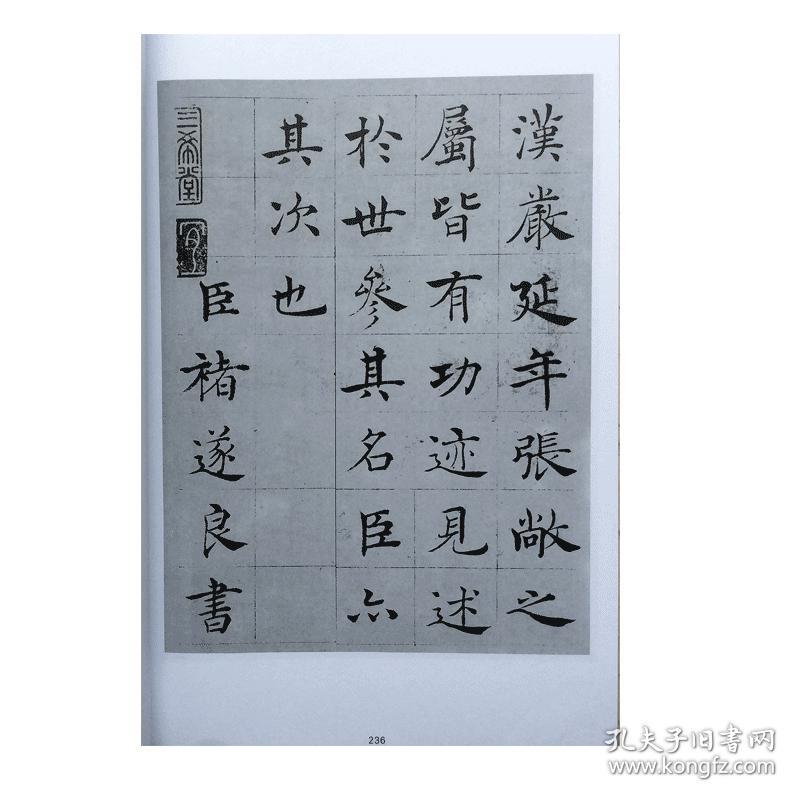 漢嚴延年張敞之
屬皆有功迹見述
於世參其名臣亦
其次也
臣褚遂良書
三希堂
236
孔夫子旧书网
www.kongfz.com